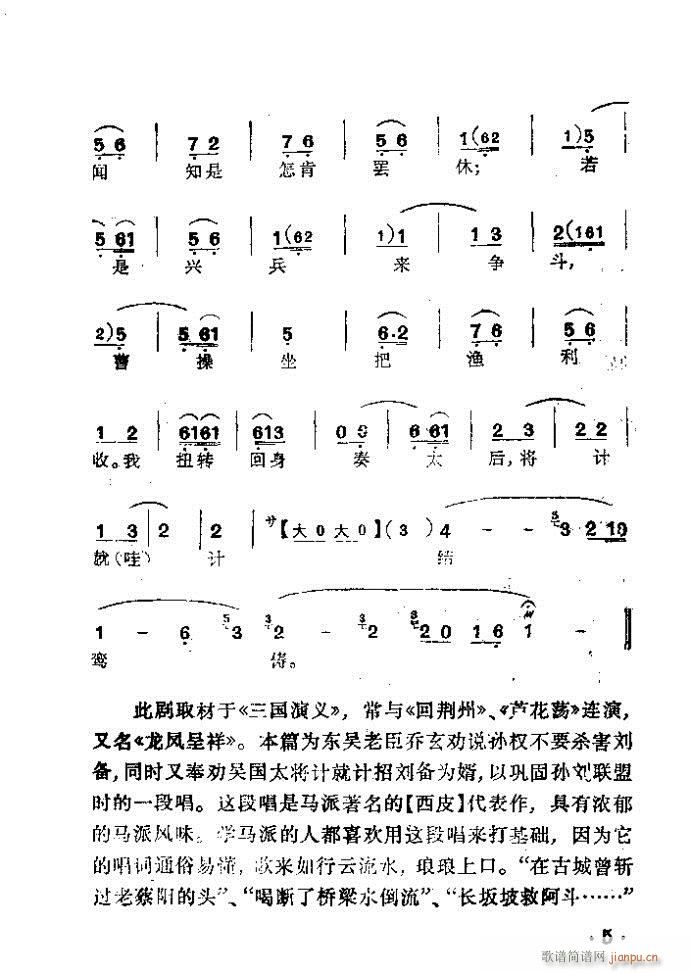 5 6 | 7 2 | 7 6 | 5 6 | 1(62 | 1)5
闻 知是 怎肯 罢 休; 若
5 61 | 5 6 | 1(62 | 1)1 | 1 3 | 2(161
是 兴 兵 来 争 斗,
2)5 | 5 61 | 5 | 6·2 | 7 6 | 5 6
曹 操 坐 把 渔 利
1 2 | 6161 | 613 | 0 | 6 61 | 2 3 | 2 2
收。我 扭转 回身 奏 太 后,将 计
1 3 | 2 | 2 | 【大0大0】(3) 4 - - 3 210
就(哇) 计 结
1 - 6 3 2 - 2 20 1 6 1 -
鸾 俦。
此剧取材于《三国演义》, 常与《回荆州》、《芦花荡》连演,
又名《龙凤呈祥》。本篇为东吴老臣乔玄劝说孙权不要杀害刘
备,同时又奉劝吴国太将计就计招刘备为婿,以巩固孙刘联盟
时的一段唱。这段唱是马派著名的【西皮】代表作, 具有浓郁
的马派风味。学马派的人都喜欢用这段唱来打基础, 因为它
的唱词通俗易懂, 歌来如行云流水, 琅琅上口。“在古城曾斩
过老蔡阳的头”、“喝断了桥梁水倒流”、“长坂坡救阿斗……”
歌谱简谱网 jianpu.cn